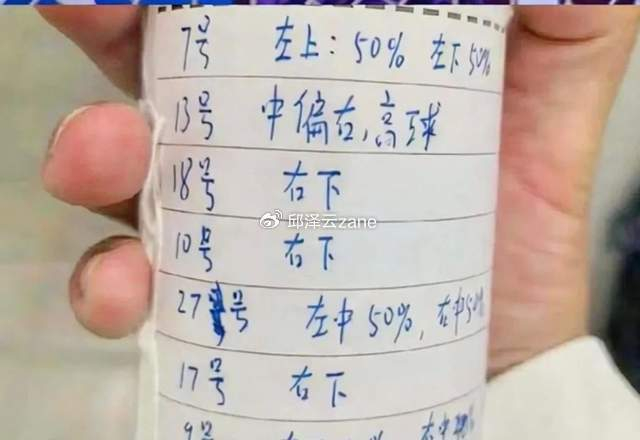 7号 左上：50% 左下50%
13号 中偏右，高球
18号 右下
邱泽云zane
10号 右下
27号 左中50%，右中50%
17号 右下
9号